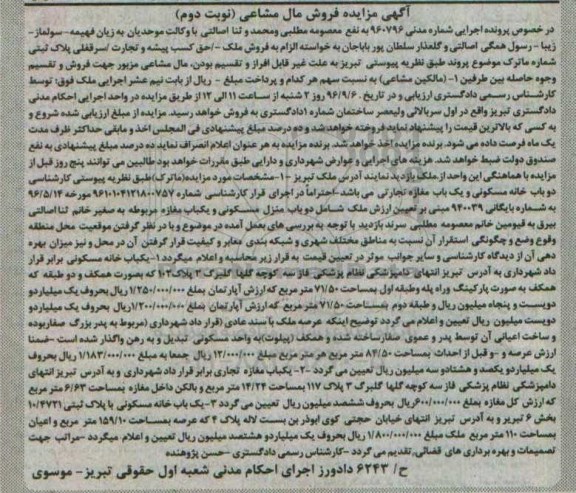 آگهی مزایده فروش مال مشاعی (نوبت دوم)
در خصوص پرونده اجرایی شماره مدنی ۹۶۰۷۹۶ به نفع معصومه مطلبی ومحمد و ثنا اصالتی با وکالت موحدیان به زیان فهیمه- سولماز-
زیبا - رسول همگی اصالتی و گلعذار سلطان پور باباجان به خواسته الزام به فروش ملک -/حق کسب پیشه و تجارت /سرقفلی پلاک ثبتی
شماره ماترک موضوع پروند طبق نظریه پیوستی تبریز به علت غیر قابل افراز و تقسیم بودن، مال مشاعی مزبور جهت فروش و تقسیم
وجوه حاصله بین طرفین ۱- (مالکین مشاعی) به نسبت سهم هر کدام و پرداخت مبلغ - ریال از بابت نیم عشر اجرایی ملک فوق؛ توسط
کارشناس رسمی دادگستری ارزیابی و در تاریخ ۹۶/۹/۶ روز ۲ شنبه از ساعت ۱۱ الی ۱۲ از طریق مزایده در واحد اجرایی احکام مدنی
دادگستری تبریز واقع در اول سربالائی ولیعصر ساختمان شماره ۱دادگستری به فروش خواهد رسید. مزایده از مبلغ ارزیابی شده شروع و
به کسی که بالاترین قیمت را پیشنهاد نماید فروخته خواهد شد و ده درصد مبلغ پیشنهادی فی المجلس اخذ و مابقی حداکثر ظرف مدت
یک ماه فرصت داده می شود. برنده مزایده اخذ خواهد شد. برنده مزایده به هر عنوان اعلام انصراف نماید ده درصد مبلغ پیشنهادی به نفع
صندوق دولت ضبط خواهد شد. هزینه های اجرایی و عوارض شهرداری و دارایی طبق مقررات خواهد بود طالبین می توانند پنج روز قبل از
مزایده با هماهنگی این واحد از ملک بازدید نمایند آدرس ملک تبریز -۱-مشخصات مورد مزایده(ماترک)طبق نظریه پیوستی کارشناسی
دو باب خانه مسکونی و یک باب مغازه تجارتی می باشد-احتراما در اجرای قرار کارشناسی شماره ۹۶۱۰۱۰۴۱۲۱۸۰۰۷۵۷ مورخه ۹۶/۵/۱۴
به شماره بایگانی ۹۴۰۰۳۹ مبنی بر تعیین ارزش ملک شامل دو باب منزل مسکونی و یکباب مغازه مربوطه به صغیر خانم ثنا اصالتی
بیرق به قیومین خانم معصومه مطلبی سرند بازدید با توجه به بررسی های بعمل آمده در موضوع و با در نظر گرفتن موقعیت محل منطقه
وقوع وضع و چگونگی استقرار آن نسبت به مناطق مختلف شهری و شبکه بندی معابر و کیفیت قرار گرفتن آن در محل و نیز میزان بهره
دهی آن از دیدگاه کارشناسی و سایر جوانب موثر در تعیین قیمت به قرار زیر محاسبه و اعلام میگردد ۱- یکباب خانه مسکونی برابر قرار
داد شهرداری به آدرس تبریز انتهای دامپزشکی نظام پزشکی فاز سه کوچه گلها گلبرگ ۲ پلاک ۱۰۲ که بصورت همکف و دو طبقه که
همکف به صورت پارکینگ وراه پله وطبقه اول بمساحت ۷۱/۵۰ متر مربع که ارزش آپارتمان بمبلغ ۱/۲۵۰/۰۰۰/۰۰۰ ریال بحروف یک میلیاردو
دویست و پنجاه میلیون ریال و طبقه دوم بمساحت ۷۱/۵۰ متر مربع که ارزش آپارتمان بمبلغ ۱/۲۰۰/۰۰۰/۰۰۰ریال بحروف یک میلیاردو
دویست میلیون ریال تعیین و اعلام می گردد توضیح اینکه عرصه ملک با سند عادی (قرار داد شهرداری (مربوط به پدر بزرگ صغاربوده
و ساخت اعیانی آن توسط پدر و عموی صغارساخته شده و همکف (پیلوت)به واحد مسکونی تبدیل و به رهن واگذار شده است -ضمنا
ارزش عرصه و - و قبل از احداث بمساحت ۸۴/۵۰ متر مربع هر متر مربع مبلغ ۱۴/۰۰۰/۰۰۰ ریال جمعا به مبلغ ۱/۱۸۳/۰۰۰/۰۰۰ ریال بحروف
یک میلیاردو یکصد و هشتادو سه میلیون ریال تعیین می گردد -۲- یکباب مغازه تجاری برابر قرار داد شهرداری و به آدرس تبریز انتهای
دامپزشکی نظام پزشکی فاز سه کوچه گلها گلبرگ ۳ پلاک ۱۱۷ بمساحت ۱۴/۲۴ متر مربع و بالکن داخل مغازه بمساحت ۶/۶۳ متر مربع
که ارزش کل مغازه بمبلغ ۶۰۰/۰۰۰/۰۰۰ریال بحروف ششصد میلیون ریال تعیین می گردد ۳-یک باب خانه مسکونی با پلاک ثبتی ۱۰/۴۷۳۱
بخش ۶ تبریز و به آدرس تبریز انتهای خیابان حجتی کوی ابوذر بن بست لاله پلاک ۴ که عرصه بمساحت ۱۵۹/۱۰ متر مربع و اعیان
بمساحت ۱۱۰ متر مربع ملک مبلغ ۱/۸۰۰/۰۰۰/۰۰۰ ریال بحروف یک میلیاردو هشتصد میلیون ریال تعیین و اعلام میگردد -مراتب جهت
تصمیمات و بهره برداری های قضائی، تقدیم می گردد -کارشناس رسمی دادگستری -حسن پژوهنده
ح/ ۶۲۴۳ دادورز اجرای احکام مدنی شعبه اول حقوقی تبریز- موسوی